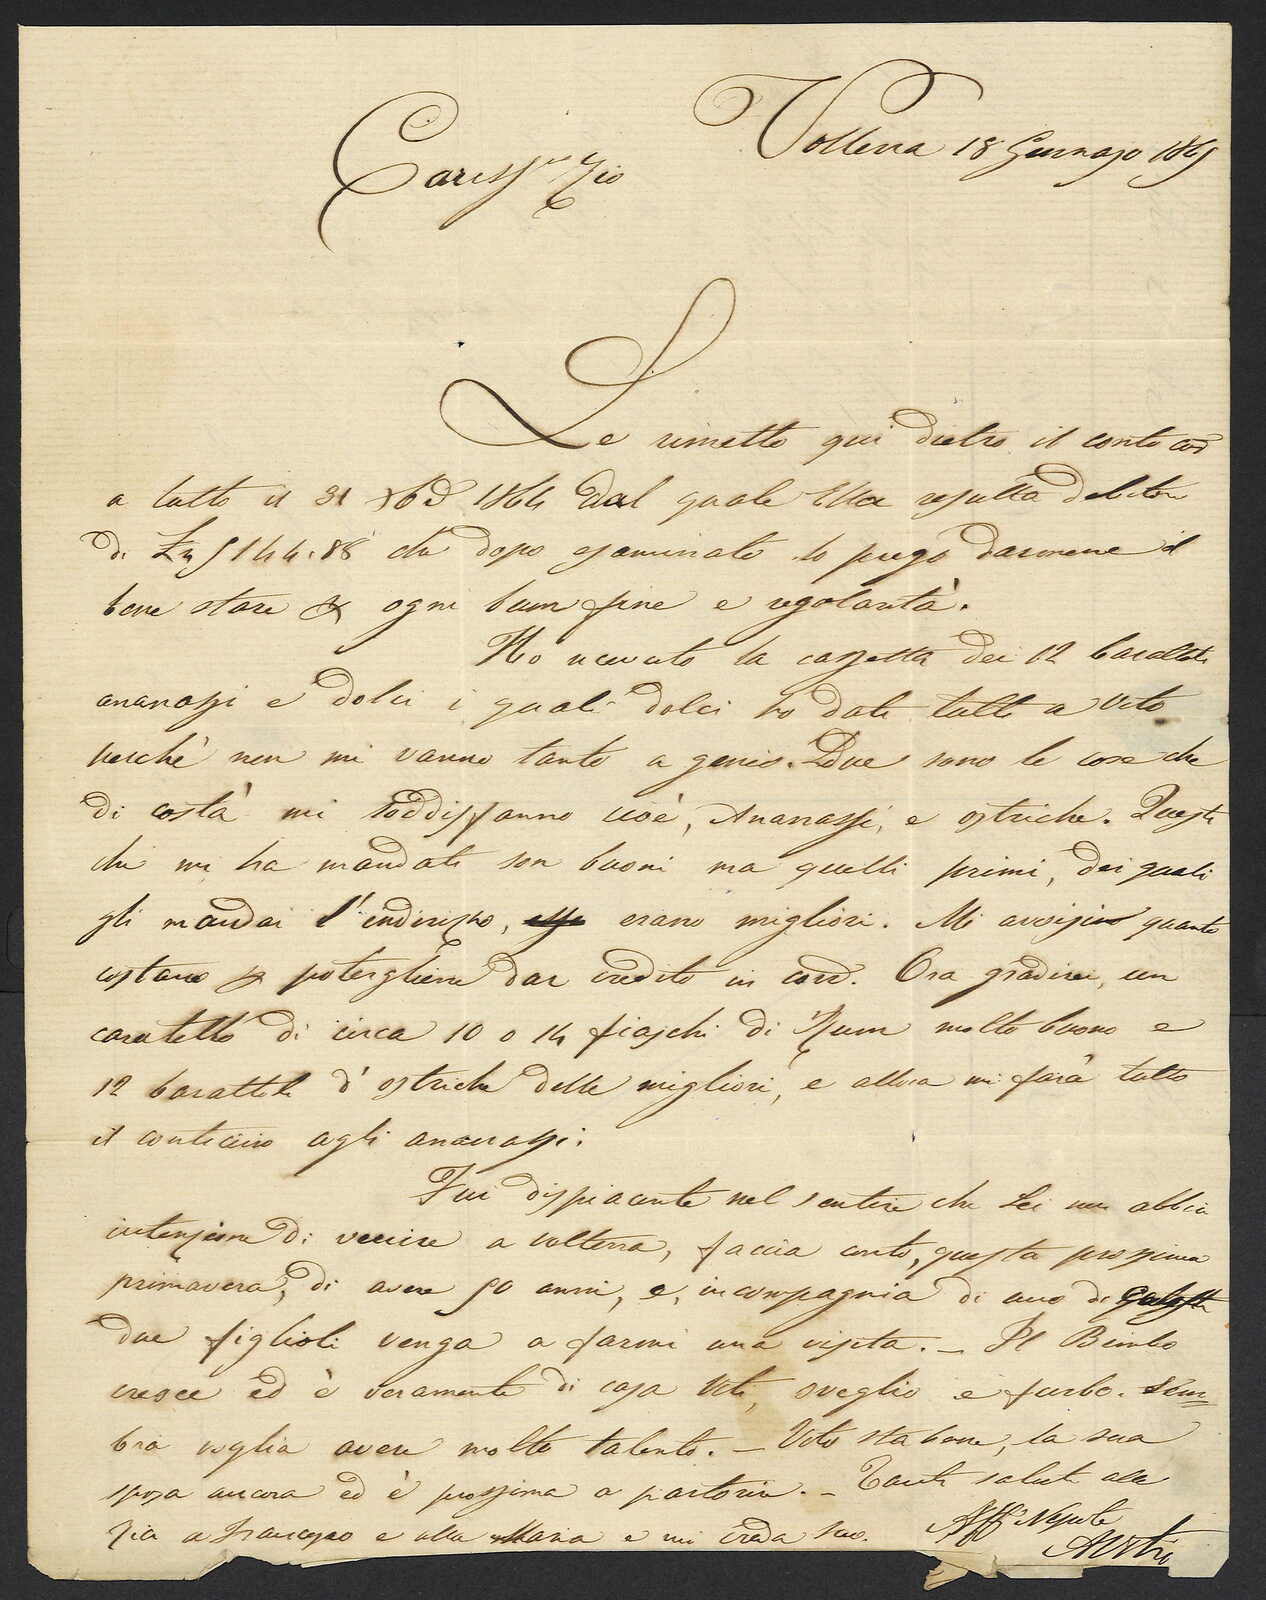 Volterra 18 Gennajo 1865
Cariss.mo Zio
Le rimetto qui dietro il conto cor
a tutto il 31 Xbre 1864 dal quale Ella resulta debitore
di 5144.88 che dopo esaminato lo prego darmene il
bene stare ogni buon fine e regolarità.
Ho ricevuto la cassetta dei 12 barattoli
ananassi e dolci i quali dolci ho dati tutti a Vito
perchè non mi vanno tanto a genio. Due sono le cose che
di costà mi soddisfanno cioè, Ananassi, e ostriche. Questi
che mi ha mandati son buoni ma quelli primi, dei quali
gli mandai l'indirizzo, erano migliori. Mi avvisino quanto
costano potergliene dar credito in cord. Ora gradirei, un
caratello di circa 10 o 14 fiaschi di Rum molto buono e
12 barattoli d'ostriche delle migliori, e allora mi farà tutto
il conticino agli ananassi.
Fui dispiacente nel sentire che Lei non abbia
intenzione di venire a Volterra, faccia conto, questa prossima
primavera, di avere 50 anni, e, in compagnia di uno di
due figlioli venga a farmi una visita. — Il Bimbo
cresce ed è veramente di casa Viti, sveglio e furbo. Sem-
bra voglia avere molto talento. — Vito sta bene, la sua
sposa ancora ed è prossima a partorire. — Tanti saluti alla
Zia a Francesco e alla Maria e mi creda suo. Aff. Nepote